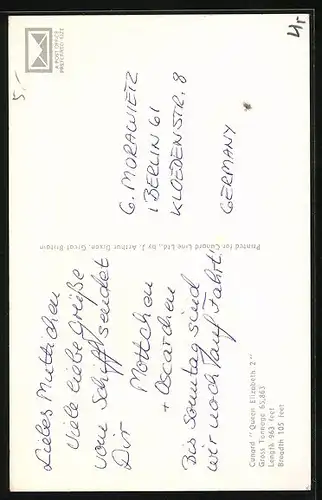 Liebes Muttichen
Viele liebe Grüße
vom Schiff sendet
Dir
Mottchen
+ Oscarchen
Bis Sonntag sind
wir noch auf Fahrt!
Cunard "Queen Elizabeth 2"
Gross Tonnage 65,863
Length 963 feet
Breadth 105 feet
Printed for Cunard Line Ltd., by J. Arthur Dixon, Great Britain
A POST OFFICE
PREFERRED SIZE
G. MORAWIETZ
1 BERLIN 61
KLOEDENSTR. 8
GERMANY
5,-
4r